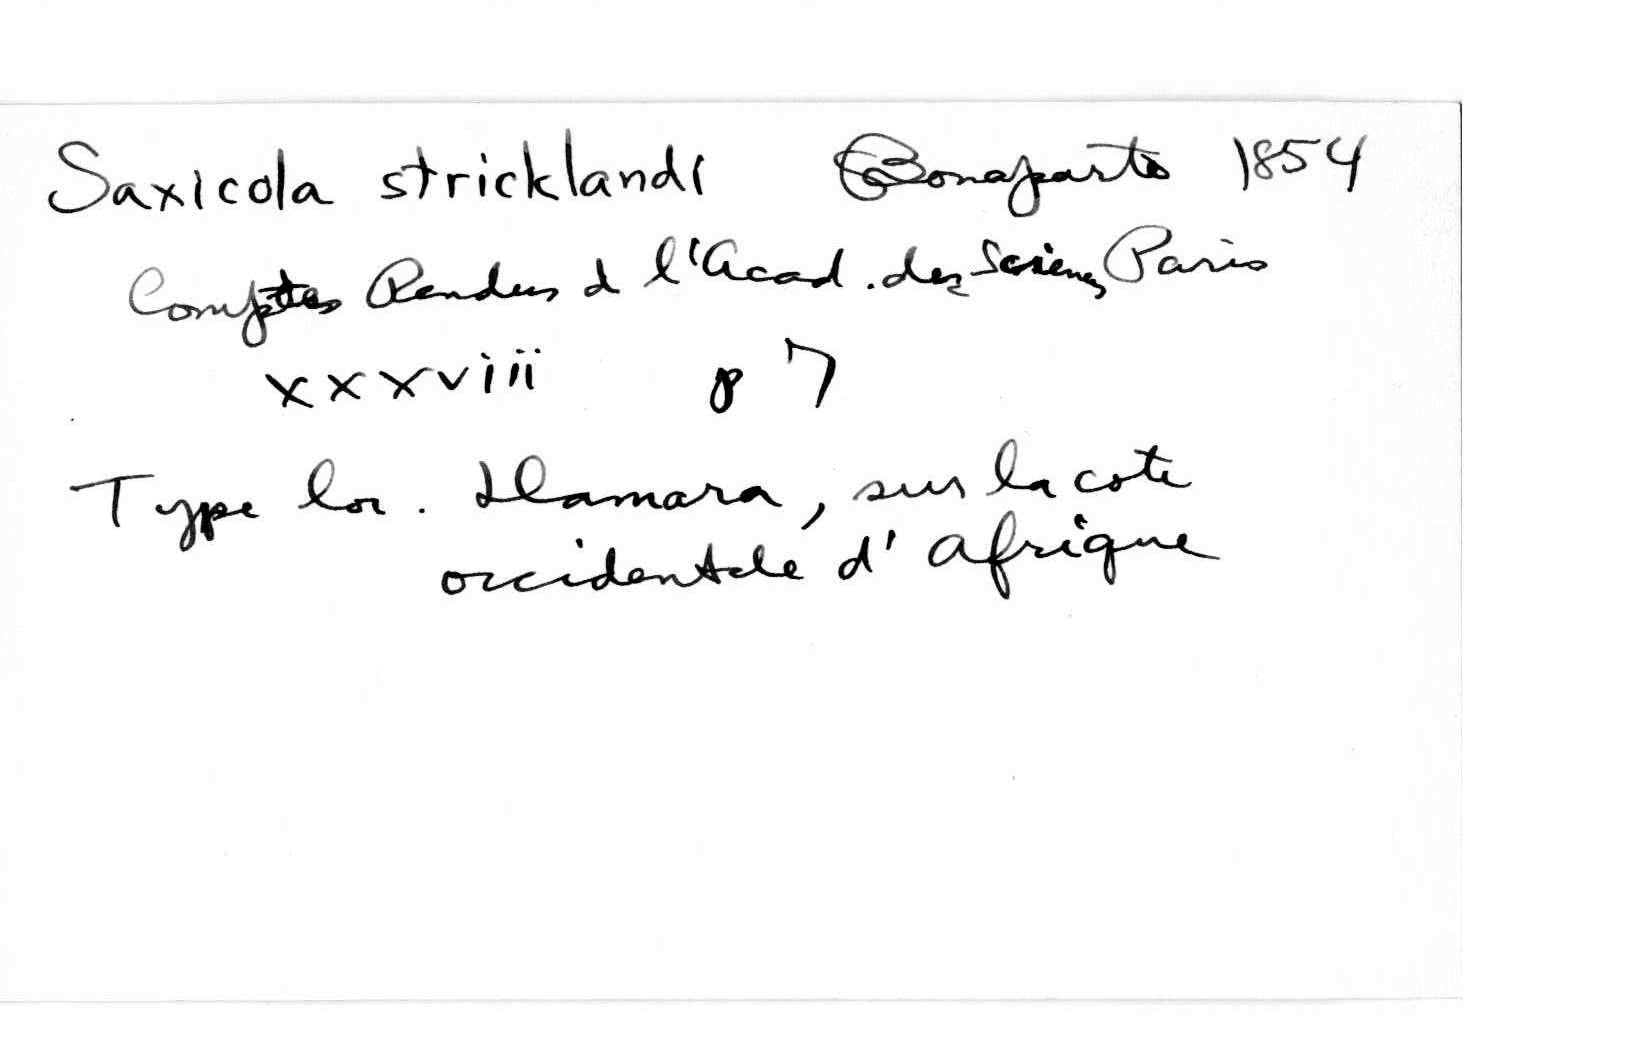 Saxicola stricklandi Bonaparte 1854
Comptes Rendus d l'Acad. des Sciences Paris
xxxviii p 7
Type loc. Damara, sur la cote
occidentale d'Afrique